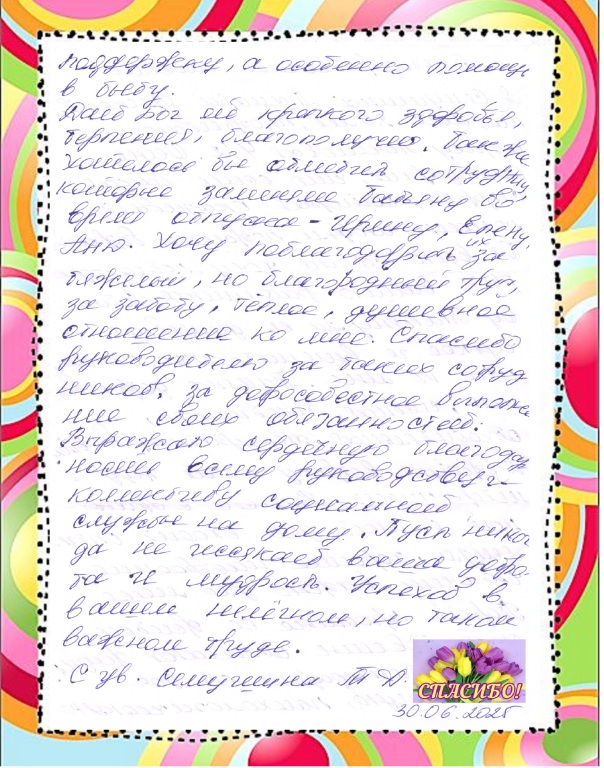 поддержку, а особенно помощь
в быту.
Дай Бог ей крепкого здоровья,
терпения, благополучия. Также
хотелось бы отметить сотрудниц,
которые заменяли Татьяну во
время отпуска - Ирину, Елену,
Аню. Хочу поблагодарить их за
тяжелый, но благородный труд,
за заботу, тёплое, душевное
отношение ко мне. Спасибо
руководителю за таких сотруд
ников, за добросовестное выполне
ние своих обязанностей.
Выражаю сердечную благодар
ность всему руководству и
коллективу социальной
службы на дому. Пусть нико
гда не иссякает ваша добро
та и мудрость. Успехов в
вашем нелёгком, но таком
важном труде.
С ув. Т Д.
СПАСИБО!
30.06.2025